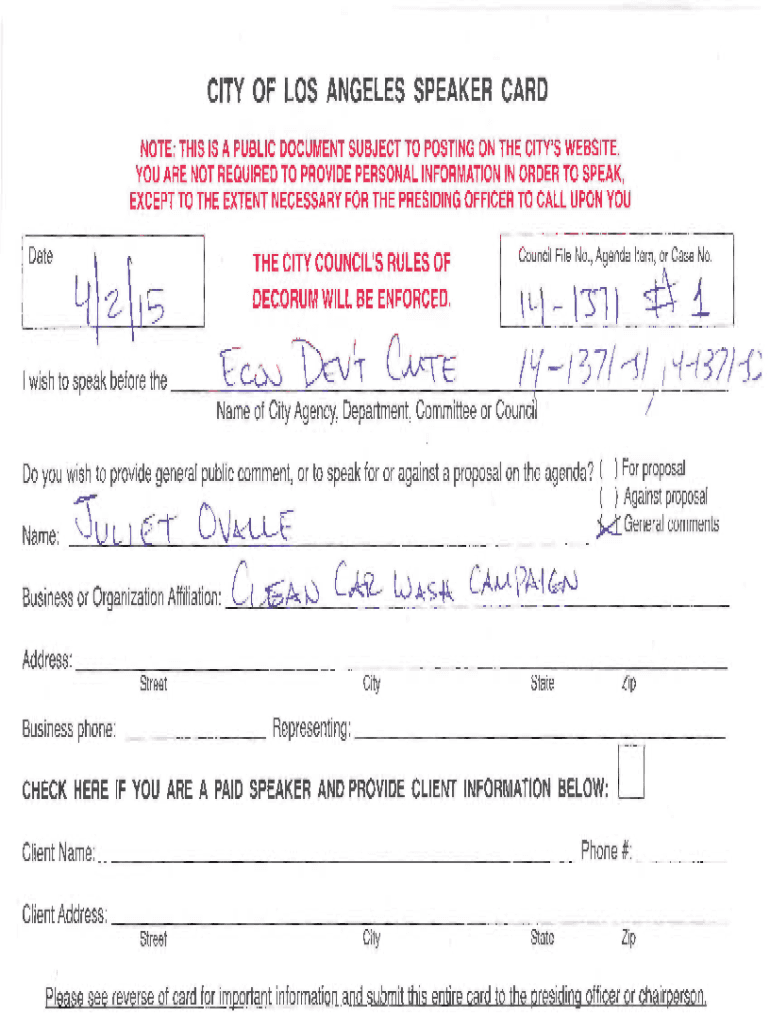 CITY OF LOS ANGELES SPEAKER CARD
NOTE: THIS IS A PUBLIC DOCUMENT SUBJECT TO POSTING ON THE CITY'S WEBSITE.
YOU ARE NOT REQUIRED TO PROVIDE PERSONAL INFORMATION IN ORDER TO SPEAK,
EXCEPT TO THE EXTENT NECESSARY FOR THE PRESIDING OFFICER TO CALL UPON YOU
Date
4/2/15
THE CITY COUNCIL'S RULES OF
DECORUM WILL BE ENFORCED.
Council File No., Agenda Item, or Case No.
14-1371 #1
I wish to speak before the ECON DEV'T CMTE 14-1371-S1, 14-1371-S2
Name of City Agency, Department, Committee or Council
Do you wish to provide general public comment, or to speak for or against a proposal on the agenda? ( ) For proposal
( ) Against proposal
(X) General comments
Name: JULIET OVALLE
Business or Organization Affiliation: CLEAN CAR WASH CAMPAIGN
Address:
Street City State Zip
Business phone: Representing:
CHECK HERE IF YOU ARE A PAID SPEAKER AND PROVIDE CLIENT INFORMATION BELOW:
Client Name: Phone #:
Client Address:
Street City State Zip
Please see reverse of card for important information and submit this entire card to the presiding officer or chairperson.